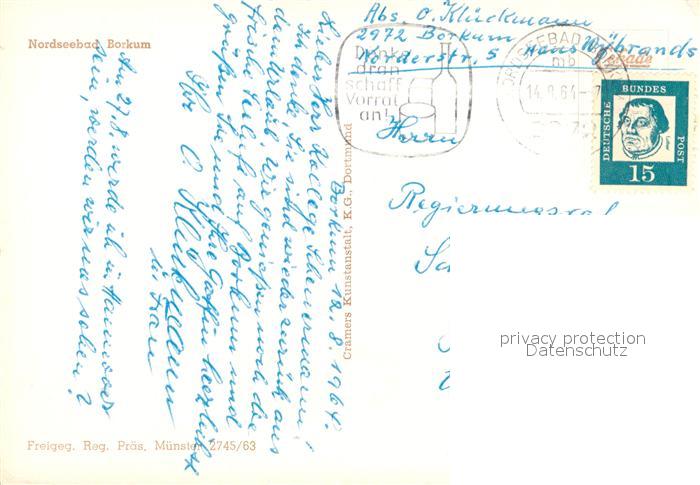 Nordseebad Borkum
Abs. O. Klückmann
2972 Borkum
Norderstr. 5 Haus Wybrands
Denke
dran
schaff
Vorrat
an!
NORDSEEBAD
mb
14.8.64
DEUTSCHE BUNDES POST
15
Herrn
Regierungsrat
Borkum 12.8.1964.
Lieber Herr Kollege
Ich denke, Sie sind wieder zurück aus
dem Urlaub. Wir genießen noch die
frische Luft auf Borkum und
grüßen Sie und Ihre Gattin herzlichst
Ihr O Klückmann
u. Frau
Am 27.8. werde ich in Hannover
sein, werden wir uns sehen?
Cramers Kunstanstalt, K.G., Dortmund
Freigeg. Reg. Präs. Münster 2745/63
privacy protection
Datenschutz